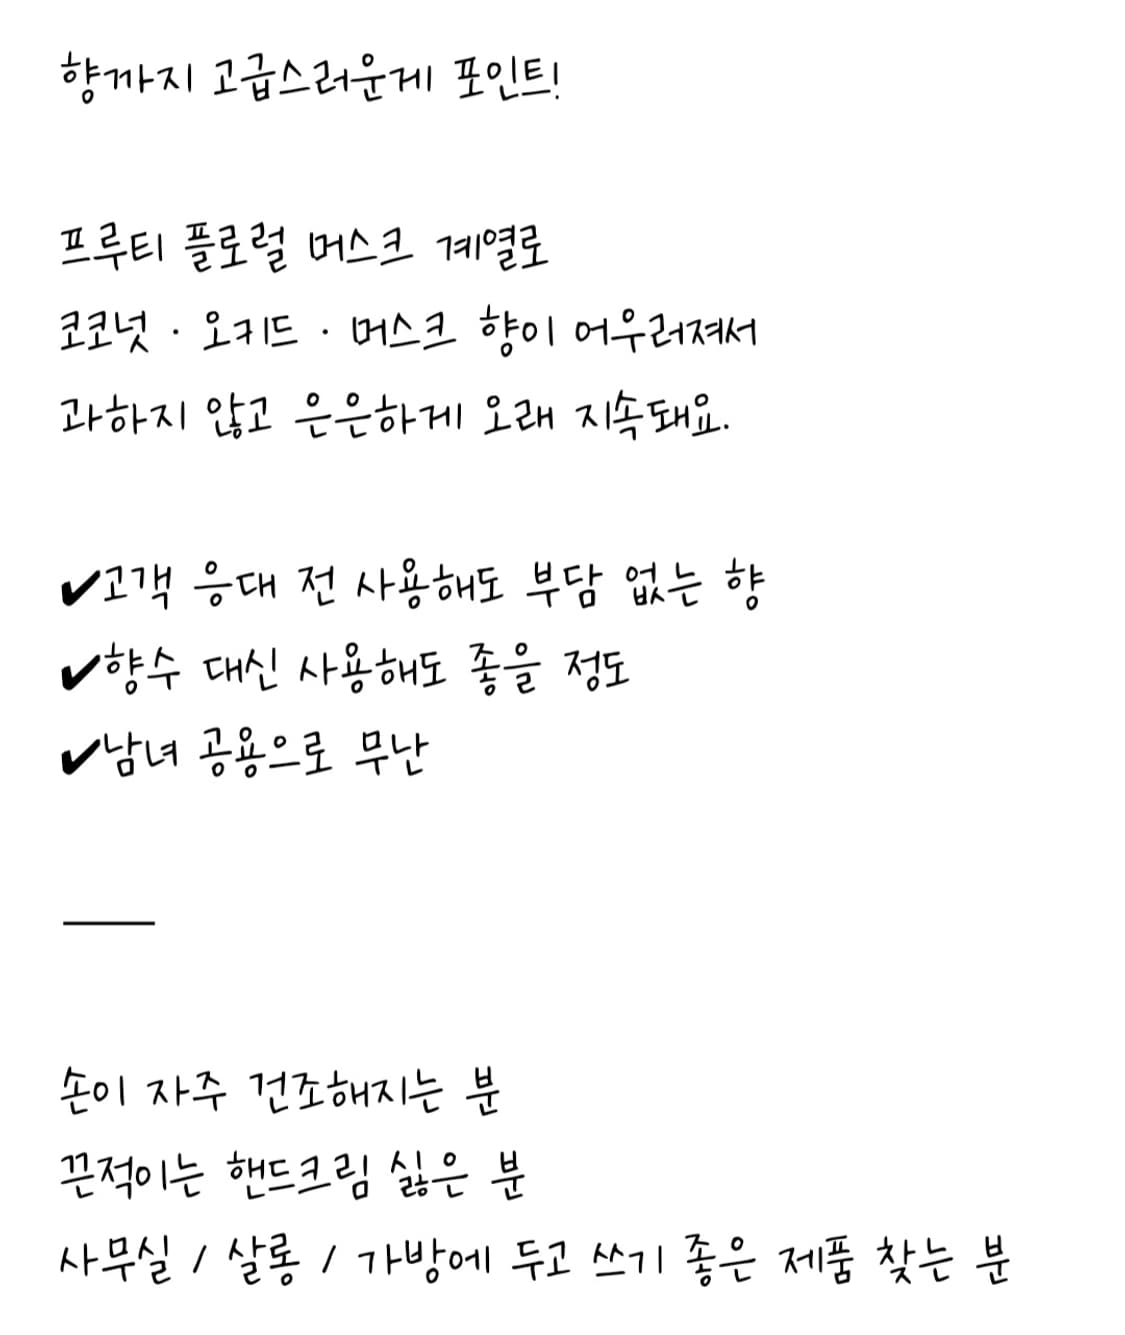 향까지 고급스러운게 포인트!
프루티 플로럴 머스크 계열로
코코넛 · 오키드 · 머스크 향이 어우러져서
과하지 않고 은은하게 오래 지속돼요.
✔고객 응대 전 사용해도 부담 없는 향
✔향수 대신 사용해도 좋을 정도
✔남녀 공용으로 무난
손이 자주 건조해지는 분
끈적이는 핸드크림 싫은 분
사무실 / 살롱 / 가방에 두고 쓰기 좋은 제품 찾는 분